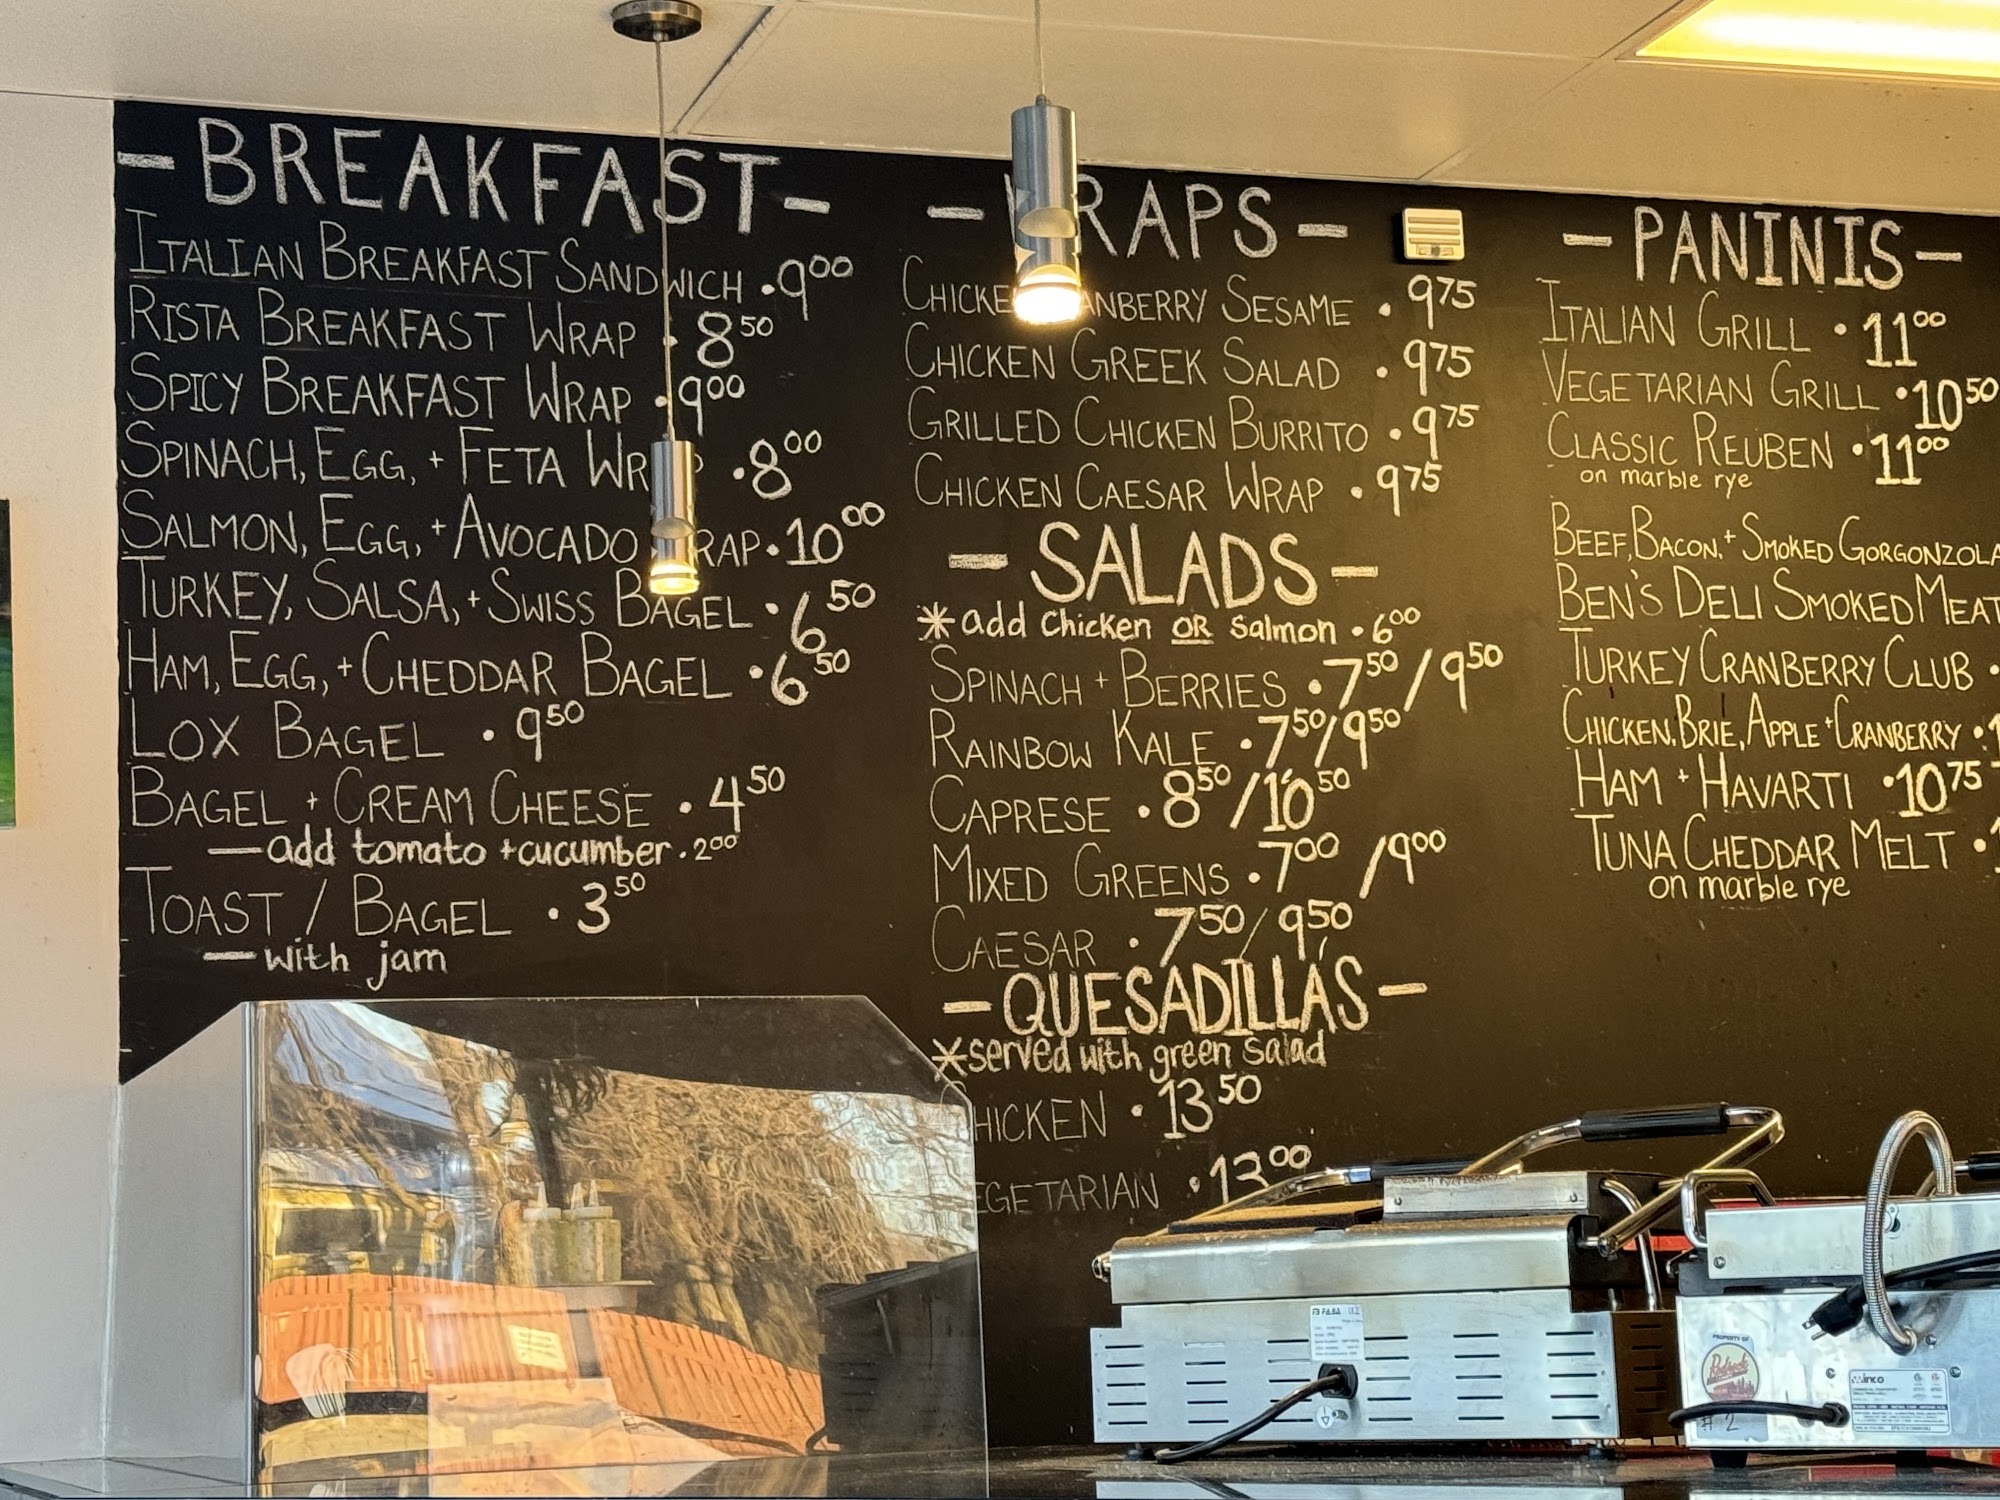 -BREAKFAST-
ITALIAN BREAKFAST SANDWICH • 9 00
RISTA BREAKFAST WRAP • 8 50
SPICY BREAKFAST WRAP • 9 00
SPINACH, EGG, + FETA WRAP • 8 00
SALMON, EGG, + AVOCADO WRAP • 10 00
TURKEY, SALSA, + SWISS BAGEL • 6 50
HAM, EGG, + CHEDDAR BAGEL • 6 50
LOX BAGEL • 9 50
BAGEL + CREAM CHEESE • 4 50
—add tomato + cucumber • 2 00
TOAST / BAGEL • 3 50
—with jam
-WRAPS-
CHICKEN CRANBERRY SESAME • 9 75
CHICKEN GREEK SALAD • 9 75
GRILLED CHICKEN BURRITO • 9 75
CHICKEN CAESAR WRAP • 9 75
-SALADS-
*add chicken OR salmon • 6 00
SPINACH + BERRIES • 7 50 / 9 50
RAINBOW KALE • 7 50 / 9 50
CAPRESE • 8 50 / 10 50
MIXED GREENS • 7 00 / 9 00
CAESAR • 7 50 / 9 50
-QUESADILLAS-
*served with green salad
CHICKEN • 13 50
VEGETARIAN • 13 00
-PANINIS-
ITALIAN GRILL • 11 00
VEGETARIAN GRILL • 10 50
CLASSIC REUBEN • 11 00
on marble rye
BEEF, BACON, + SMOKED GORGONZOLA
BEN'S DELI SMOKED MEAT
TURKEY CRANBERRY CLUB •
CHICKEN, BRIE, APPLE + CRANBERRY •
HAM + HAVARTI • 10 75
TUNA CHEDDAR MELT •
on marble rye
PROPERTY OF
# 2
Winco